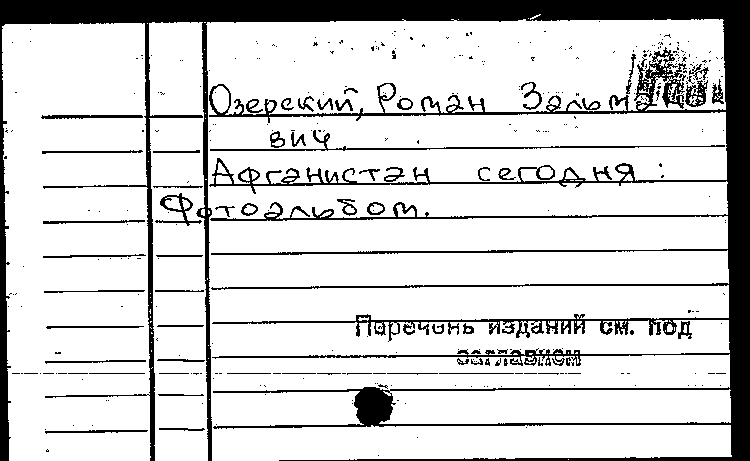 Озерский, Роман Зальмано-
вич.
Афганистан сегодня:
Фотоальбом.
Перечень изданий см. под
заглавием